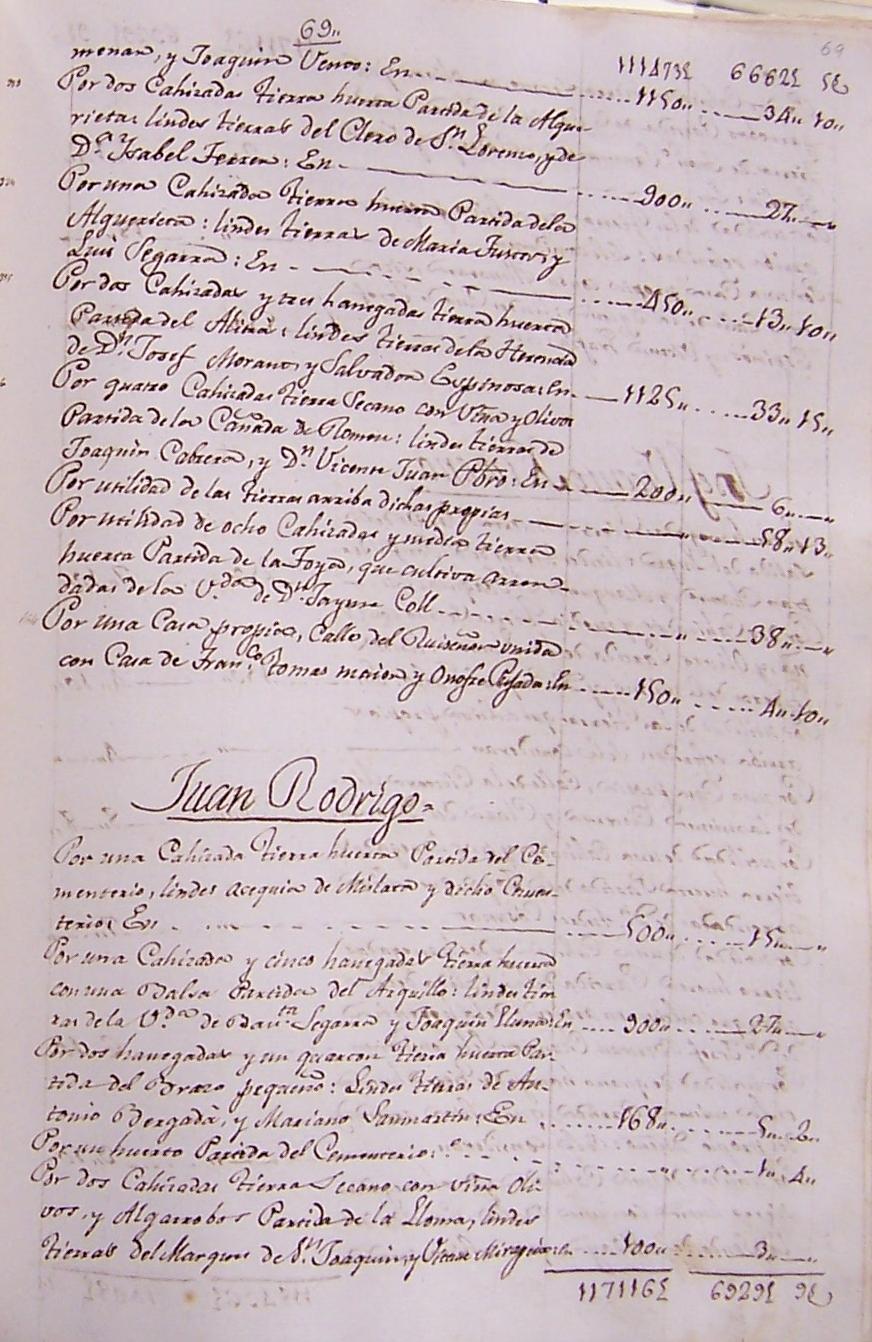 69,,
69
menar, y Joaquin Vento: En 111473£ 6662£ 5s
1150,, 34,, 10,,
Por dos Cahizadas tierra huerta Partida de la Algue-
rieta: lindes tierras del Clero de Sn. Lorenzo, y de
Da. Ysabel Ferrer: En 900,, 27,, ,,
Por una Cahizada tierra huerta Partida dela
Alguerieta: lindes tierras de Maria y
Luis Segarra: En 450,, 13,, 10,,
Por dos Cahizadas y tres hanegadas tierra huerta
Partida del Alterò: lindes tierras dela Herencia
de Dn. Josef Morant, y Salvador Espinosa: En 1125,, 33,, 15,,
Por quatro Cahizadas tierra Secano con Viña y Olivos
Partida de la Cañada de Romeu: lindes tierras de
Joaquin Cabrera, y Dn. Vicente Juan Pbro: En 200,, 6,, ,,
Por utilidad de las tierras arriba dichas propias ,, 58,, 13,,
Por utilidad de ocho Cahizadas y media tierra
huerta Partida de la Foya, que cultiva arren-
dadas de la V.da de Dn. Jayme Coll ,, 38,, ,,
Por una Casa propia, Calle del Ruiseñor unida
con Casa de Franco. Tomas maior y Onofre Posada: En 150,, 4,, 10,,
Juan Rodrigo
Por una Cahizada tierra huerta Partida del Ce-
menterio, lindes acequia de Mislata y dicho Cemen-
terio: En 500,, 15,, ,,
Por una Cahizada y cinco hanegadas tierra huerta
con una Balsa Partida del Arquillo: lindes tier-
ras de la V.da de Bauta. Segarra y Joaquin Lluna: En 900,, 27,, ,,
Por dos hanegadas y un quarton tierra huerta Par-
tida del Brazo pequeño: Lindes tierras de An-
tonio Bergada, y Mariano Sanmartin: En 168,, 5,, 2,,
Por un huerto Partida del Cementerio: ,, 1,, 4,,
Por dos Cahizadas tierra Secano con viña Oli-
vos, y Algarrobos Partida de la Lloma, lindes
tierras del Marques de Sn. Joaquin, y Vicente Miraguano: En 100,, 3,, ,,
117116£ 6929£ 9s